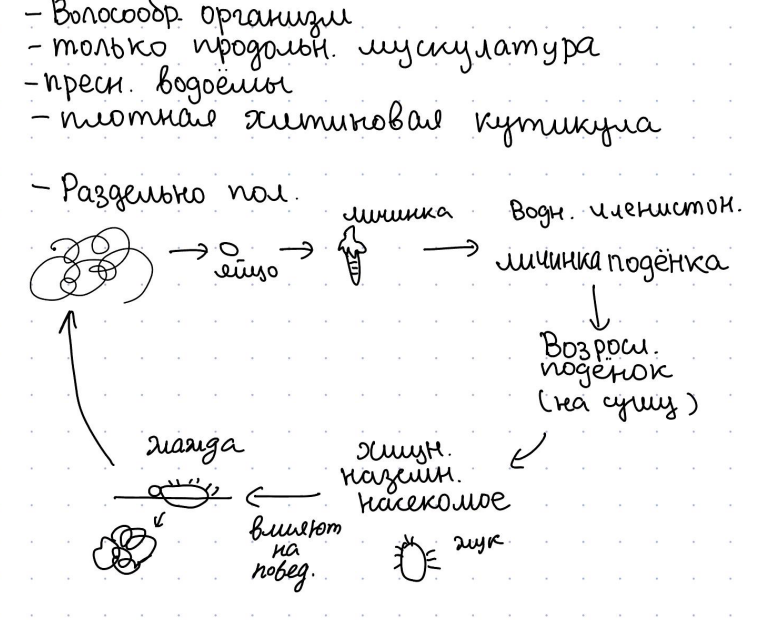 - Волосообр. организм
- только продольн. мускулатура
- пресн. водоёмы
- плотная хитиновая кутикула
- Раздельно пол.
яйцо
личинка
Водн. членистон.
личинка подёнка
Возросл.
подёнок
(на сушу)
хищн.
наземн.
насекомое
жук
влияют
на
повед.
жажда